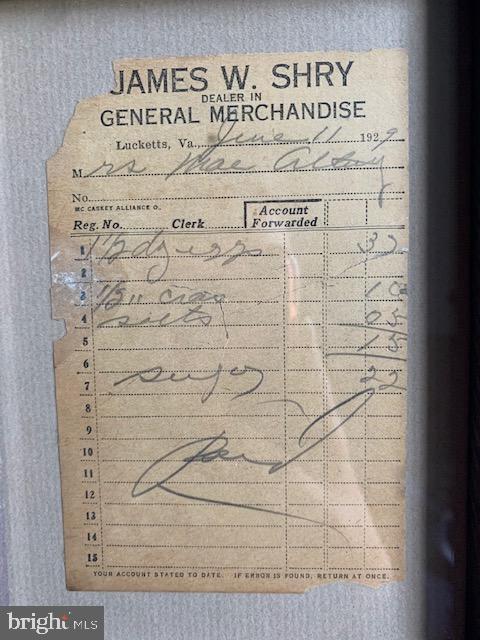 JAMES W. SHRY
DEALER IN
GENERAL MERCHANDISE
Lucketts, Va. June 11 1929
Mrs Mae
No.
MC CASKEY ALLIANCE O.
Reg. No. Clerk Account Forwarded
1 1 1/2 dz eggs 32
2
3 10
4 05
5 15
6
7 sugar 22
8
9
10
11 Paid
12
13
14
15
YOUR ACCOUNT STATED TO DATE. IF ERROR IS FOUND, RETURN AT ONCE.
bright MLS